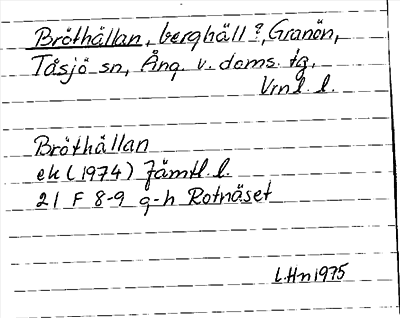 Bröthällan, berghäll?, Granön,
Tåsjö sn, Ång. v. doms. tg,
Vrnl. l.
Bröthällan
ek (1974) Jämtl. l.
21 F 8-9 g-h Rotnäset
L.Hn 1975